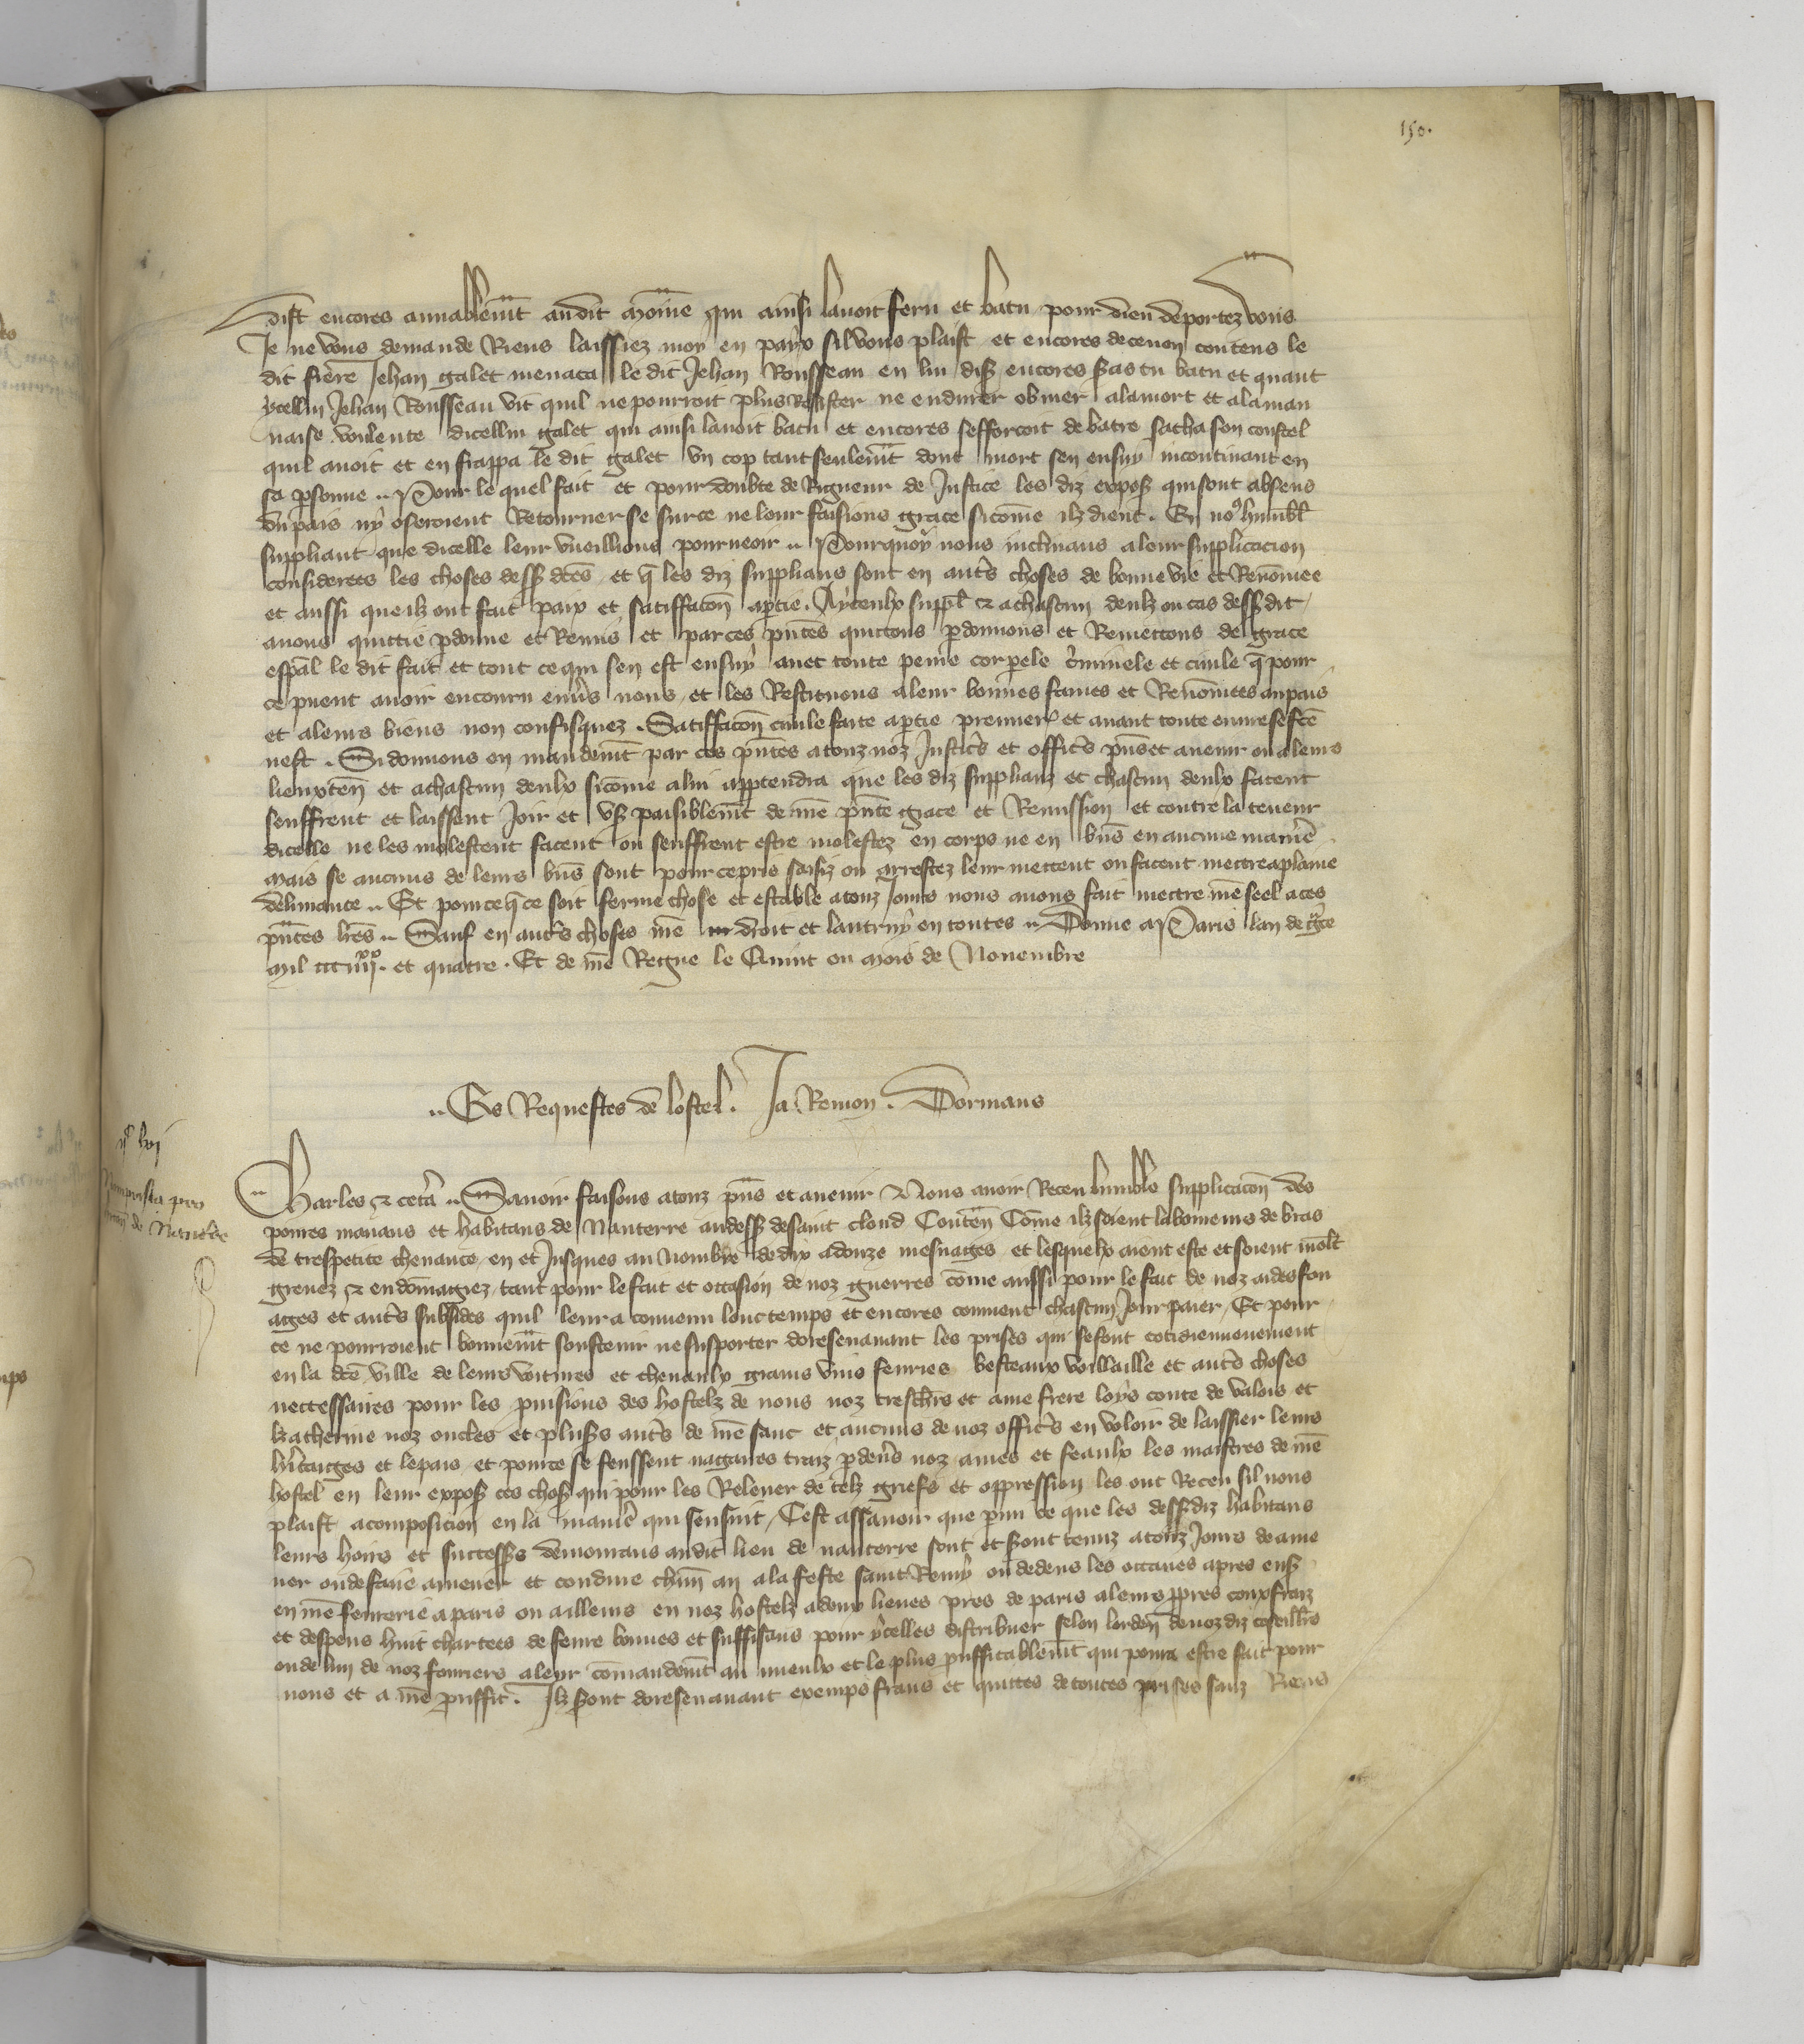 150.
dist encores amiablemt audit moine qui ainsi lavoit feru et batu pour dieu deportez vous
Je ne vous demande Riens laissiez moy en paix sil vous plaist et encores de ce non contens le
dit frere Jehan galet menaca le dit Jehan Rousseau en lui disant encores seras tu batu et quant
ycellui Jehan Rousseau vit quil ne pourroit plus Resister ne endurer obvier ala mort et ala mau
vaise voulente dicellui galet qui ainsi lavoit batu et encores sefforcoit de batre sacha son coustel
quil avoit et en frappa le dit galet un cop tant seulemt dont mort sen ensuy incontinant en
sa psonne .. Pour le quel fait et pour doubte de Rigueur de Justice les diz expos qui sont absens
du pais ny oseroient Retourner se sur ce ne leur faisions grace sicome ilz dient . En no9 humbl
suppliant que dicelle leur vueillions pourveoir .. Pourquoy nous inclinans a leur supplicacion
considerees les choses dess dces et q les diz supplians sont en autrs choses de bonne vie et Renomee
et aussi que ilz ont fait paix et satiffacon aptie . Aycculx suppl & achascun deulz ou cas dess dit
avons quittie pdonne et Remis et par ces pntes quittons pdonnons et Remettons de grace
espal le dit fait et tout ce qui sen est ensuy avec toute peine corporele criminele et civile q pour
ce puent avoir encouru envrs nous et les Restituons a leur bonnes fames et Renomees au pais
et a leurs biens non confisquez . Satiffacon civile faite aptie premier et avant toute euvre se fce
nest . Si donnons en mandemt par ces pntes a touz noz Justicrs et officrs pns et avenir ou a leurs
lieuxten et achascun deulx sicome a lui apptendra que les diz supplianz et chascun deulx facent
seuffrent et laissent Joir et us paisiblemt de nre pnte grace et Remission et contre la teneur
dicelle ne les molestent facent ou seuffrent estre molestez en corps ne en biens en aucune manre
mais se aucuns de leurs biens sont pour ce pris saisiz ou arrestez leur mettent ou facent mettre a plaine
delivrance .. Et pour ce q ce soit ferme chose et estable a touz Jours nous avons fait mettre nre seel a ces
pntes lres .. Sauf en autrs choses nre droit et lautruy en toutes .. Donne a Paris lan de grce
mil ccc iiijxx. et quatre . Et de nre Regne le Quint ou mois de Novembre
.. Es Requestes de lostel . Ja Remon . Dormans
Charles & cetra .. Savoir faisons a touz pns et avenir Nous avoir Receu humble supplicacon des
povres manans et habitans de Nanterre audess de saint cloud Conten Come ilz soient laboureurs de bras
de tres petite chevance en et Jusques au nombre de dix a douze mesnages et lesquelx aient este et soient molt
grevez & endomagiez tant pour le fait et occasion de noz guerres come aussi pour le fait de noz aides fou
ages et autrs subsides quil leur a convenu lonc temps et encores convient chascun Jour paier / Et pour
ce ne pourroient bonnemt soustenir ne supporter doresenavant les prises qui se font cotidiennement
en la dce ville de leurs voitures et chevaulx grains vins feurres besteaux volaille et autrs choses
necessaires pour les pvisions des hostelz de nous noz treschrs et ame frere loys conte de valois et
katherine noz oncles et pluss autrs de nre sanc et aucuns de noz officrs en voloir de laissier leurs
hritaiges et le pais et pour ce se feussent nagaires traiz pdevrs noz ames et feaulx les maistres de nre
hostel en leur expos ces chos qui pour les Relever de telz griefs et oppression les ont Receu sil nous
plaist a composicion en la manre qui sensuit / Cest assavoir que pmi ce que les dessdiz habitans
leurs hoirs et successrs demourans audit lieu de nanterre sont et sront tenuz a touz Jours de ame
ner ou de faire amener et conduire chun an a la feste saint Remy ou dedens les octaves apres ens
en nre feurrerie a paris ou ailleurs en noz hostelz a deux lieues pres de paris a leurs ppres coux fraiz
et despens huit chartees de feurre bonnes et suffisans pour ycelles distribuer selon lorden de noz diz coseillrs
ou de lun de noz fourriers a leur comandemt au mieulx et le plus pffitablemt qui pourra estre fait pour
nous et a nre pffit . Ilz sront doresenavant exemps frans et quittes de toutes prises sanz Riens
ijc lvj
pro
de Nanterre